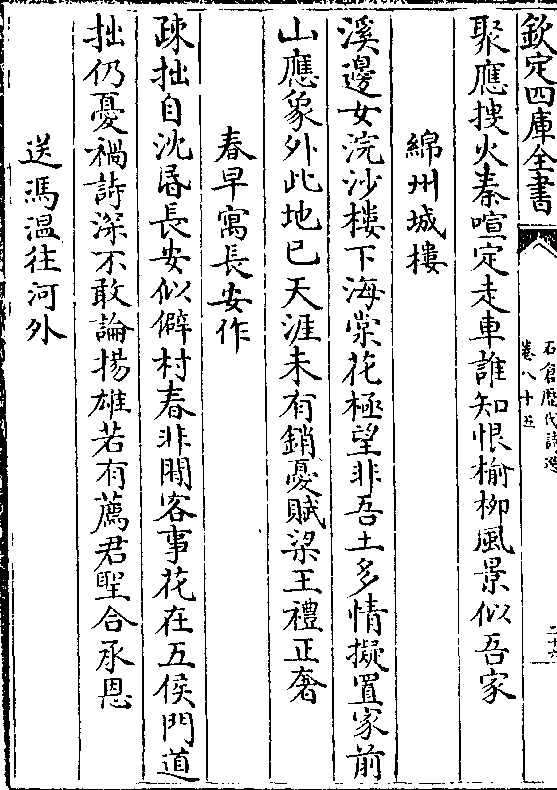 欽定四庫全書
石倉歷代詩選
卷八十五
二十六
聚應搜火秦喧定走車誰知恨榆柳風景似吾家
綿州城樓
溪邊女浣沙樓下海棠花極望非吾土多情擬置家前
山應象外此地已天涯未有銷憂賦梁王禮正奢
春早寓長安作
疎拙自沈昬長安似僻村春非閒客事花在五侯門道
拙仍憂禍詩深不敢論揚雄若有薦君聖合承恩
送馮溫往河外